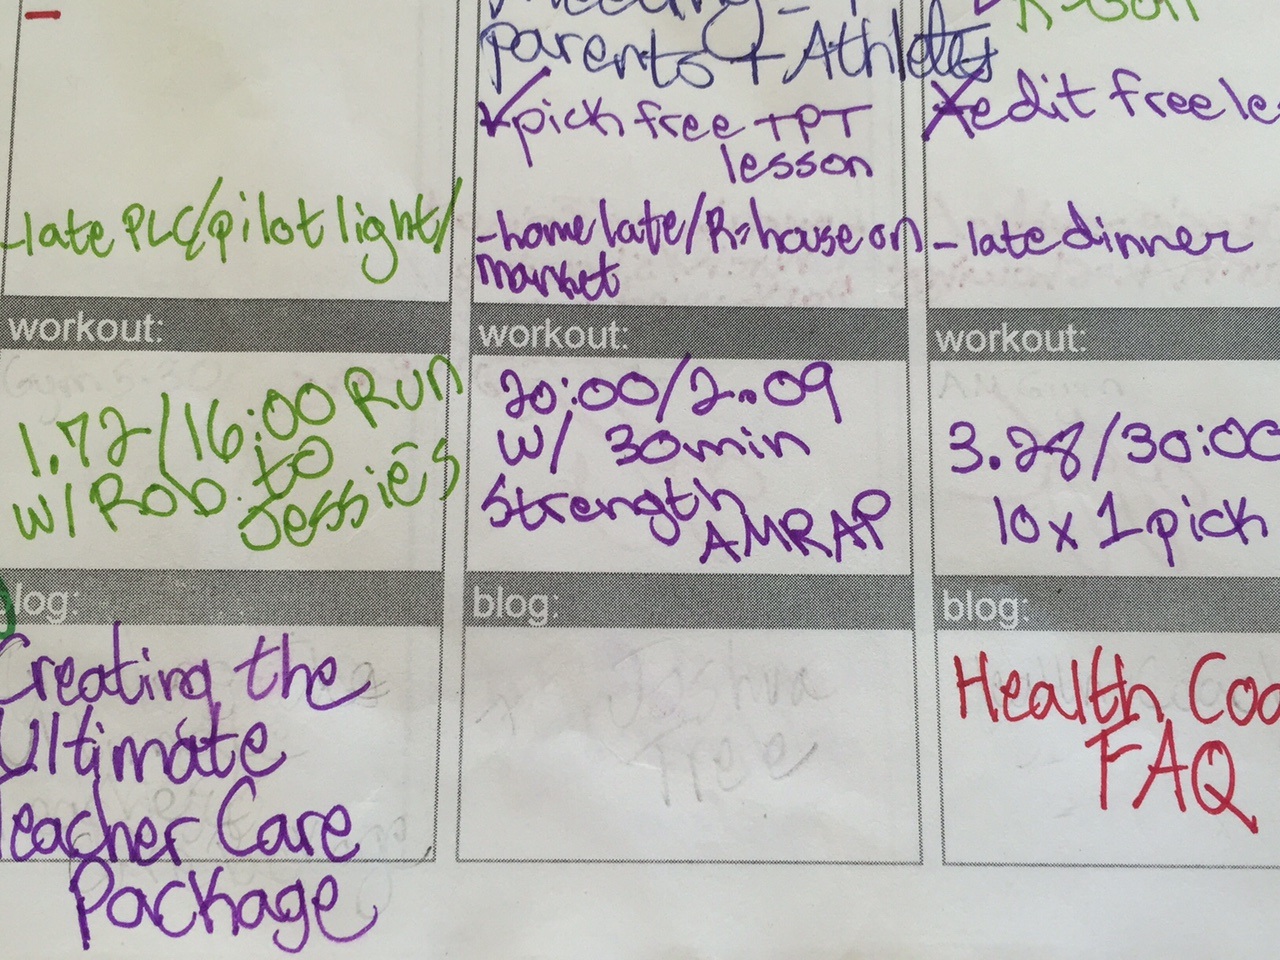 -late PLC/pilot light/
workout:
1.72/16:00 Run
w/ Rob. to
Jessie's
log:
Creating the
Ultimate
Teacher Care
Package
Meeting -
parents + Athletes
✓pick free TPT
lesson
-home late/R=house on
market
workout:
20:00/2.09
w/ 30min
Strength
AMRAP
blog:
Joshua
Tree
edit free le
-late dinner
workout:
3.28/30:00
10x 1 pick
blog:
Health Coa
FAQ